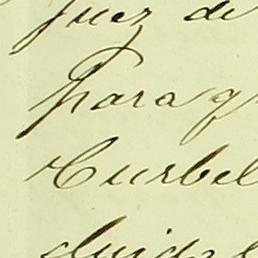 Juez de
para q
Curbel